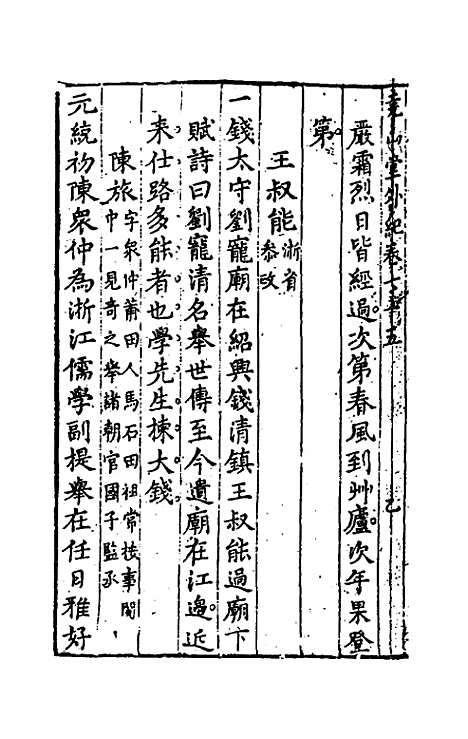 堯山堂外紀卷七十五
嚴霜烈日皆經過次第春風到艸廬次年果登
第
王叔能浙省
叅政
一錢太守劉寵廟在紹興錢清鎮王叔能過廟下
賦詩曰劉寵清名舉世傳至今遺廟在江邊近
来仕路多能者也學先生揀大錢
陳旅字衆仲莆田人馬石田祖常按事閩
中一見奇之舉諸朝官國子監丞
元統初陳衆仲為浙江儒學副提舉在任日雅好